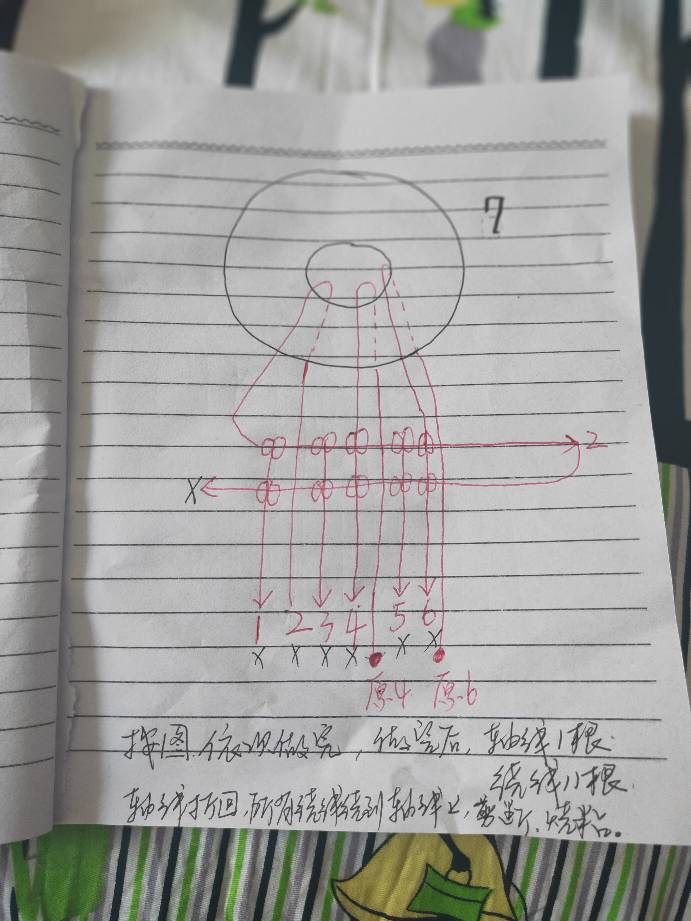 7
2
X
1 2 3 4 5 6
X X X X X X
原4 原6
按图依次做完，做完后，轴线1根
绕线11根
轴线折回，所有绕线绕到轴线上，剪断、烧粘。